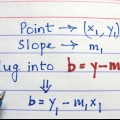 Point → (x₁, y₁)
Slope → m₁
lug into b = y-m
b = y₁ - m₁x₁